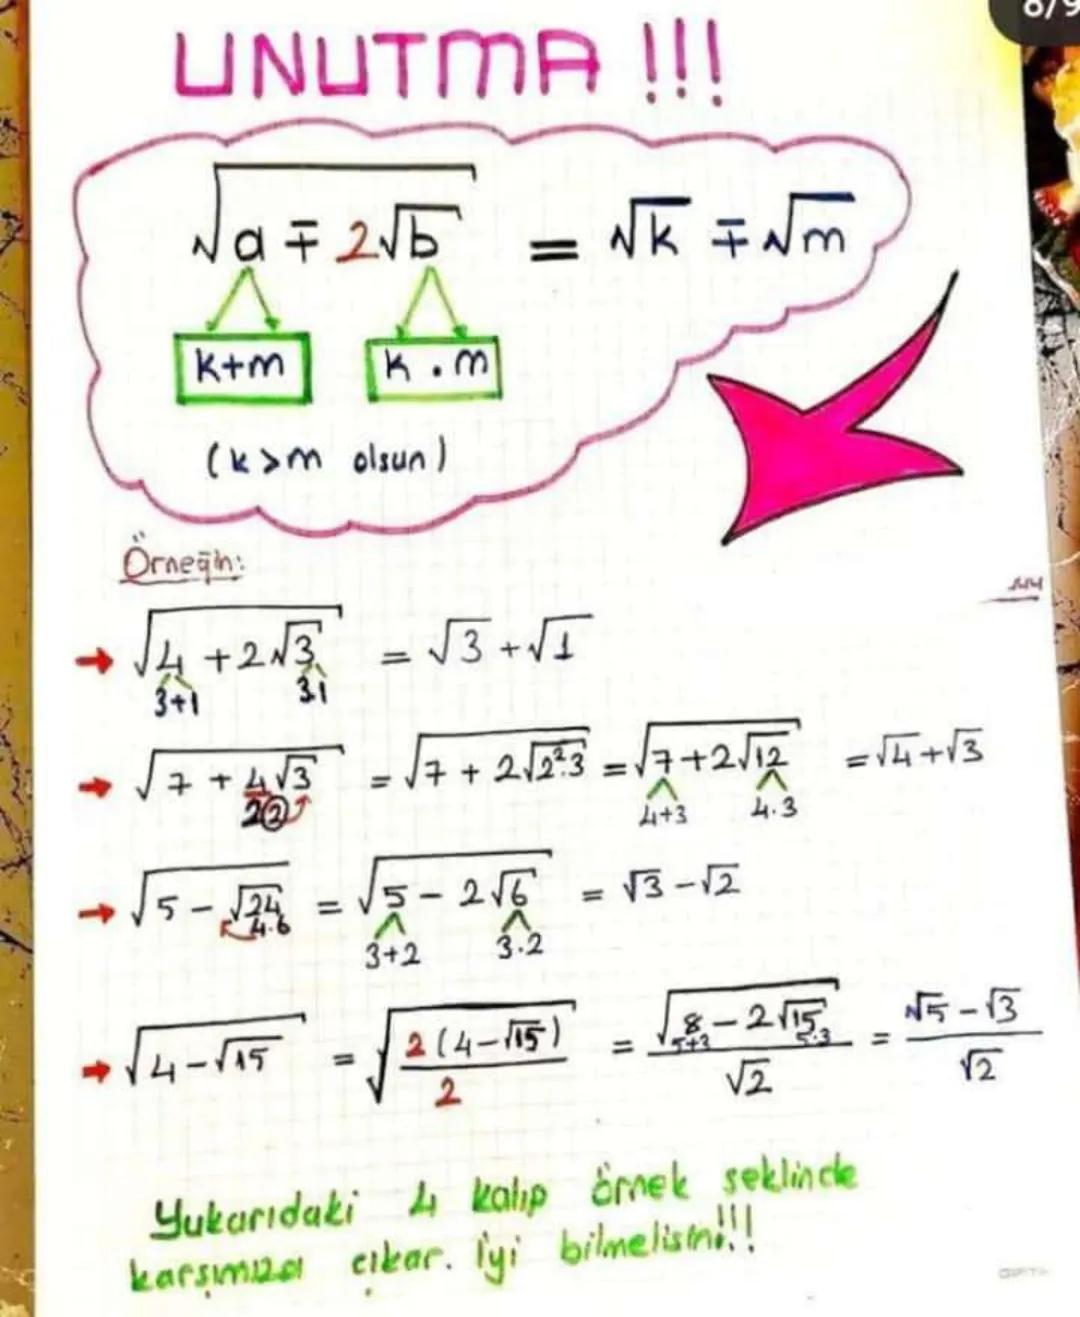 8/9
UNUTMA !!!
√(a ∓ 2√b) = √k ∓ √m
k+m k . m
(k>m olsun)
Örneğin:
→ √(4 + 2√3) = √3 + √1
3+1 3.1
→ √(7 + 4√3) = √(7 + 2√(2².3)) = √(7+2√12) = √4+√3
2② 4+3 4.3
→ √(5 - √24) = √(5 - 2√6) = √3 - √2
4.6 3+2 3.2
→ √(4-√15) = √(2(4-√15)/2) = √(8-2√15)/√2 = (√5 - √3)/√2
5+3 5.3
Yukarıdaki 4 kalıp örnek şeklinde
karşımıza çıkar. İyi bilmelisin!!!